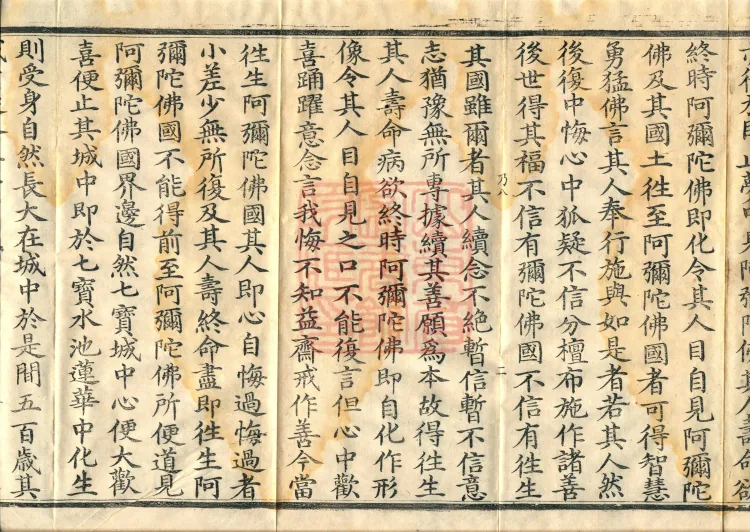 終時阿彌陀佛即化令其人目自見阿彌陀
佛及其國土徃至阿彌陀佛國者可得智慧
勇猛佛言其人奉行施與如是者若其人然
後復中悔心中狐疑不信分檀布施作諸善
後世得其福不信有彌陀佛國不信有徃生
乃
二
其國雖爾者其人續念不絕暫信暫不信意
志猶豫無所專據續其善願爲本故得徃生
其人壽命病欲終時阿彌陀佛即自化作形
像令其人目自見之口不能復言但心中歡
喜踊躍意念言我悔不知益齋戒作善今當
徃生阿彌陀佛國其人即心自悔過悔過者
小差少無所復及其人壽終命盡即徃生阿
彌陀佛國不能得前至阿彌陀佛所便道見
阿彌陀佛國界邊自然七寶城中心便大歡
喜便止其城中即於七寶水池蓮華中化生
則受身自然長大在城中於是間五百歲其